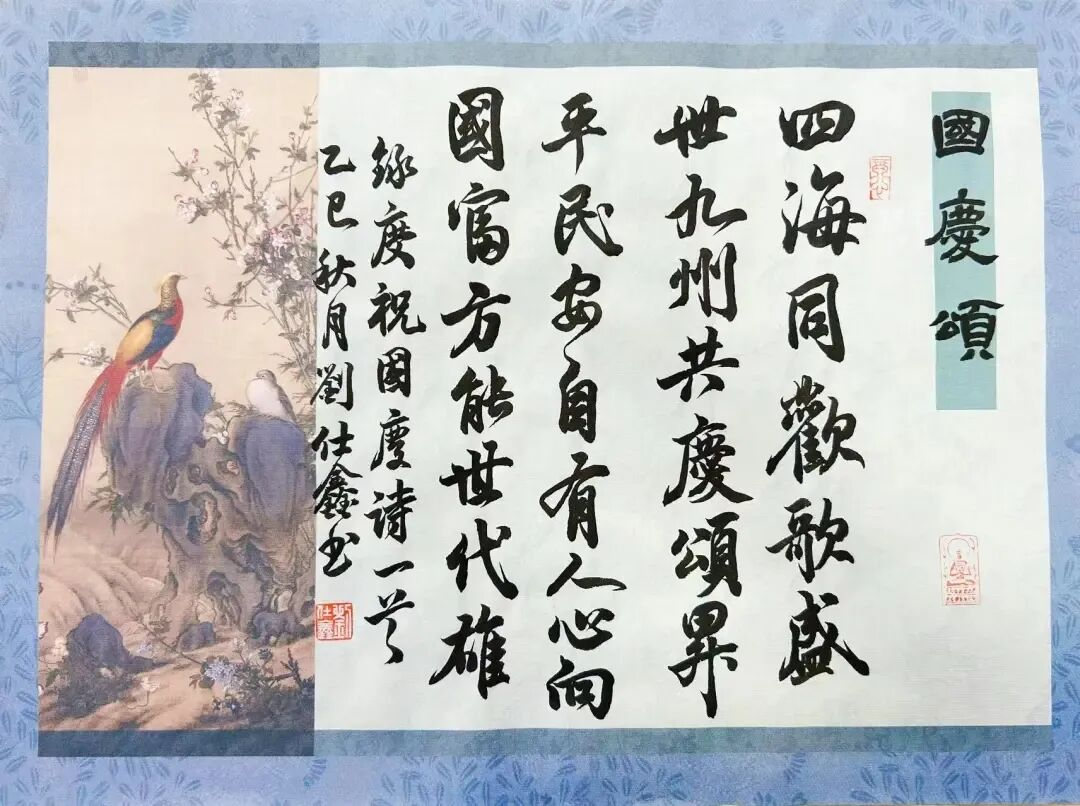 國慶頌
四海同歡歌盛
世九州共慶頌昇
平民安自有人心向
國富方能世代雄
錄慶祝國慶詩一首
乙巳秋月劉仕鑫书
劉仕鑫